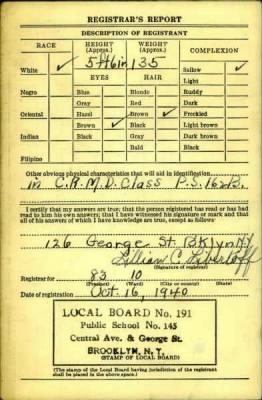 REGISTRAR'S REPORT
DESCRIPTION OF REGISTRANT
RACE HEIGHT (Approx.) WEIGHT (Approx.) COMPLEXION
5 ft 6 in 135
White ✓ Sallow ✓
EYES HAIR Light
Negro Blue Blonde Ruddy
Gray Red Dark
Oriental Hazel Brown ✓ Freckled
Brown ✓ Black Light brown
Indian Black Gray Dark brown
Bald Black
Filipino
Other obvious physical characteristics that will aid in identification
in C.R.M.D. Class P.S. 162B.
I certify that my answers are true; that the person registered has read or has had
read to him his own answers; that I have witnessed his signature or mark and that
all of his answers of which I have knowledge are true, except as follows:
126 George St. Bklyn NY
Lillian C.
(Signature of registrar)
Registrar for 83 10
(Precinct) (Ward) (City or county) (State)
Date of registration Oct. 16, 1940
LOCAL BOARD No. 191
Public School No. 145
Central Ave. & George St.
BROOKLYN, N. Y.
(STAMP OF LOCAL BOARD)
(The stamp of the Local Board having jurisdiction of the registrant
shall be placed in the above space.)